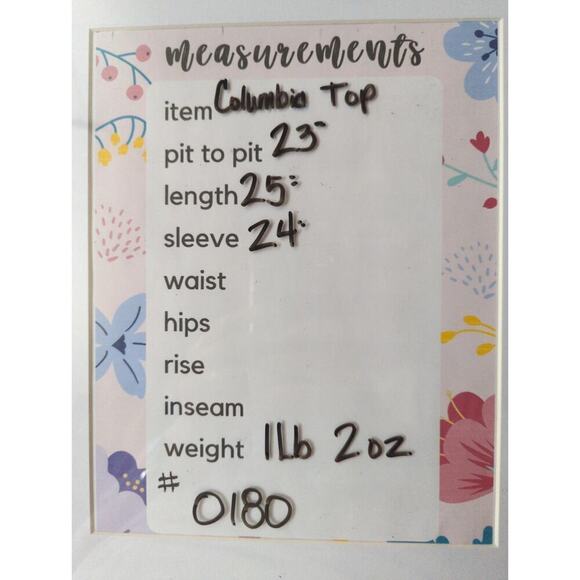 measurements
item Columbia Top
pit to pit 23"
length 25"
sleeve 24"
waist
hips
rise
inseam
weight 1Lb 2oz.
#
0180